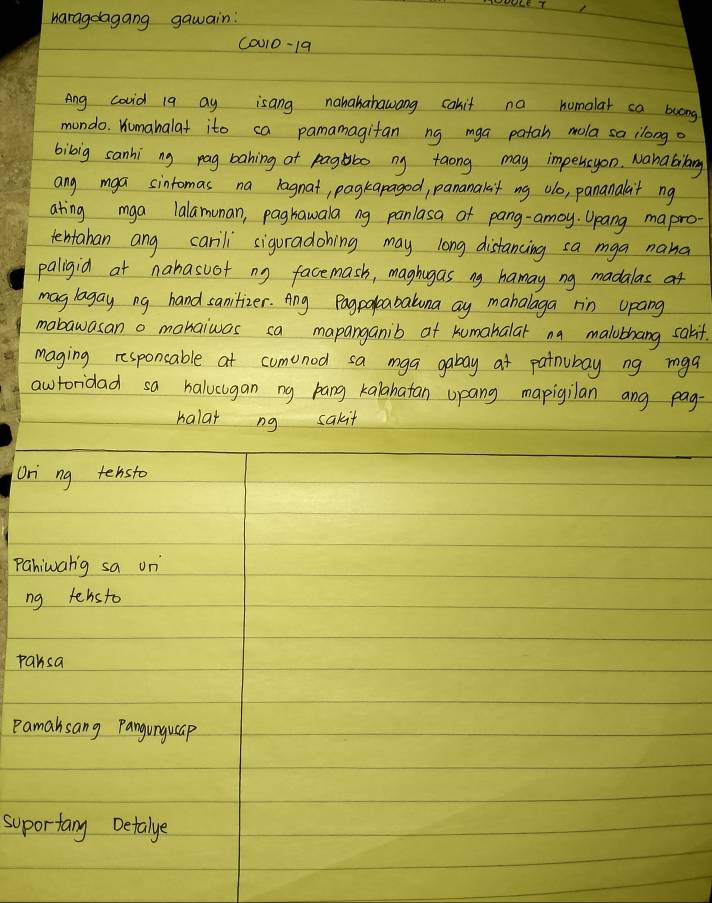 Karagdagang gawain:
COVID-19
Ang covid 19 ay isang nakakahawang sakit na kumalat sa buong
mundo. Kumakalat ito sa pamamagitan ng mga patak mula sa ilong o
bibig sanhi ng pag bahing at pag ubo ng taong may impeksyon. Nakabibang
ang mga sintomas na lagnat, pagkapagod, pananakit ng ulo, pananakit ng
ating mga lalamunan, pagkawala ng panlasa at pang-amoy. Upang mapro-
tektahan ang sarili siguradohing may long distancing sa mga naka
paligid at nakasuot ng facemask, maghugas ng kamay ng madalas at
mag lagay ng hand sanitizer. Ang Pagpapabakuna ay mahalaga rin upang
mabawasan o makaiwas sa mapanganib at kumakalat na malubhang sakit.
Maging responsable at sumunod sa mga gabay at patnubay ng mga
awtoridad sa kalusugan ng pang kalahatan upang mapigilan ang pag-
kalat ng sakit
Uri ng teksto
Pahiwatig sa uri
ng teksto
Paksa
Pamaksang Pangungusap
Suportang Detalye